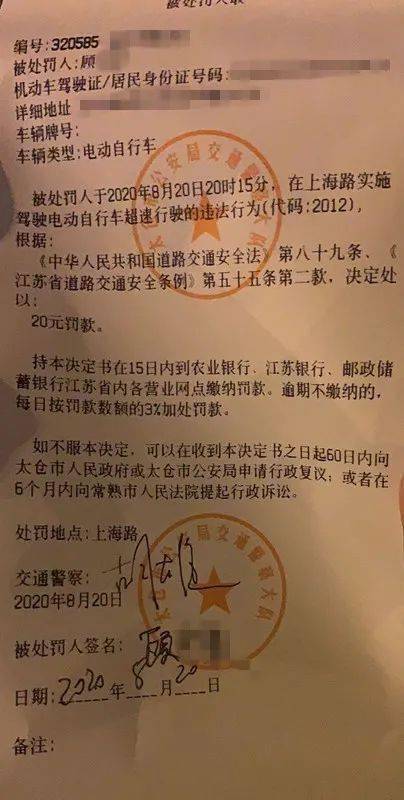 被处罚人联
编号:320585
被处罚人:顾
机动车驾驶证/居民身份证号码:
详细地址
车辆牌号:
车辆类型:电动自行车
被处罚人于2020年8月20日20时15分，在上海路实施
驾驶电动自行车超速行驶的违法行为(代码:2012)，
根据:
《中华人民共和国道路交通安全法》第八十九条、《
江苏省道路交通安全条例》第五十五条第二款，决定处
以:
20元罚款。
持本决定书在15日内到农业银行、江苏银行、邮政储
蓄银行江苏省内各营业网点缴纳罚款。逾期不缴纳的，
每日按罚款数额的3%加处罚款。
如不服本决定，可以在收到本决定书之日起60日内向
太仓市人民政府或太仓市公安局申请行政复议；或者在
6个月内向常熟市人民法院提起行政诉讼。
处罚地点:上海路
交通警察:
2020年8月20日
被处罚人签名: 顾
日期:2020年8月20日
备注:
太仓市公安局交通警察大队
太仓市公安局交通警察大队